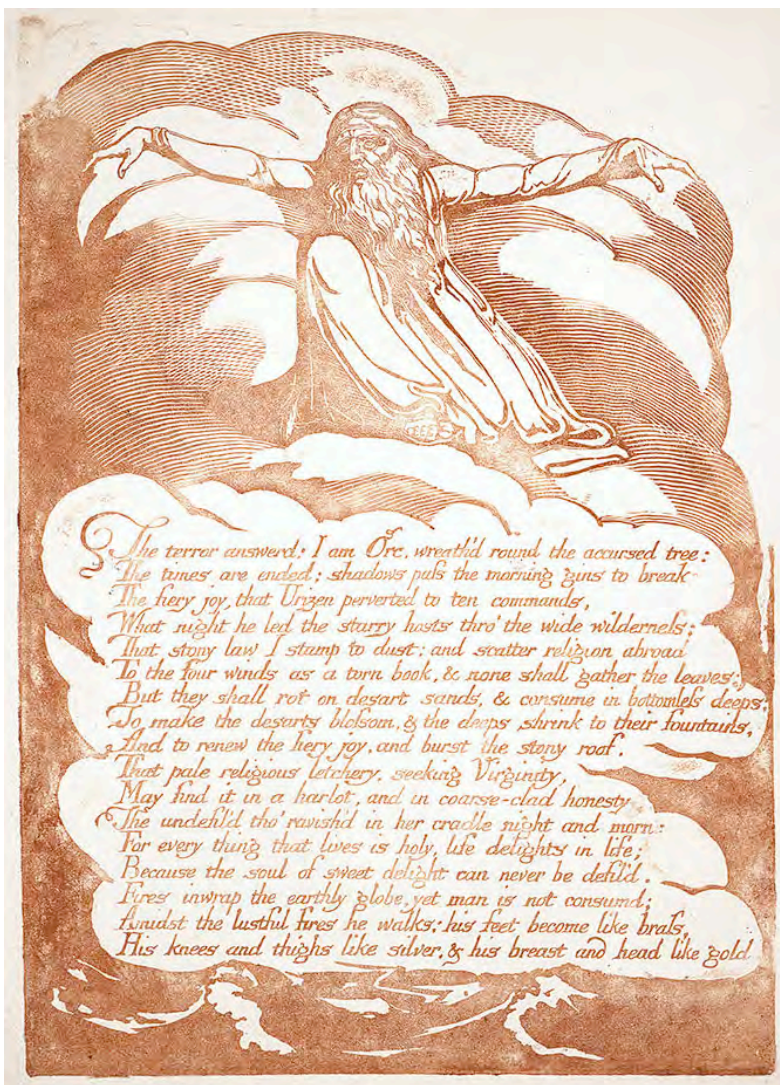 The terror answerd: I am Orc, wreath'd round the accursed tree:
The times are ended; shadows pass the morning gins to break
The fiery joy, that Urizen perverted to ten commands,
What night he led the starry hosts thro' the wide wilderness:
That stony law I stamp to dust: and scatter religion abroad
To the four winds as a torn book, & none shall gather the leaves;
But they shall rot on desart sands, & consume in bottomless deeps;
To make the desarts blossom, & the deeps shrink to their fountains,
And to renew the fiery joy, and burst the stony roof.
That pale religious letchery, seeking Virginity,
May find it in a harlot, and in coarse-clad honesty
The undefil'd tho' ravish'd in her cradle night and morn:
For every thing that lives is holy, life delights in life;
Because the soul of sweet delight can never be defil'd.
Fires inwrap the earthly globe, yet man is not consumd;
Amidst the lustful fires he walks: his feet become like brass,
His knees and thighs like silver, & his breast and head like gold